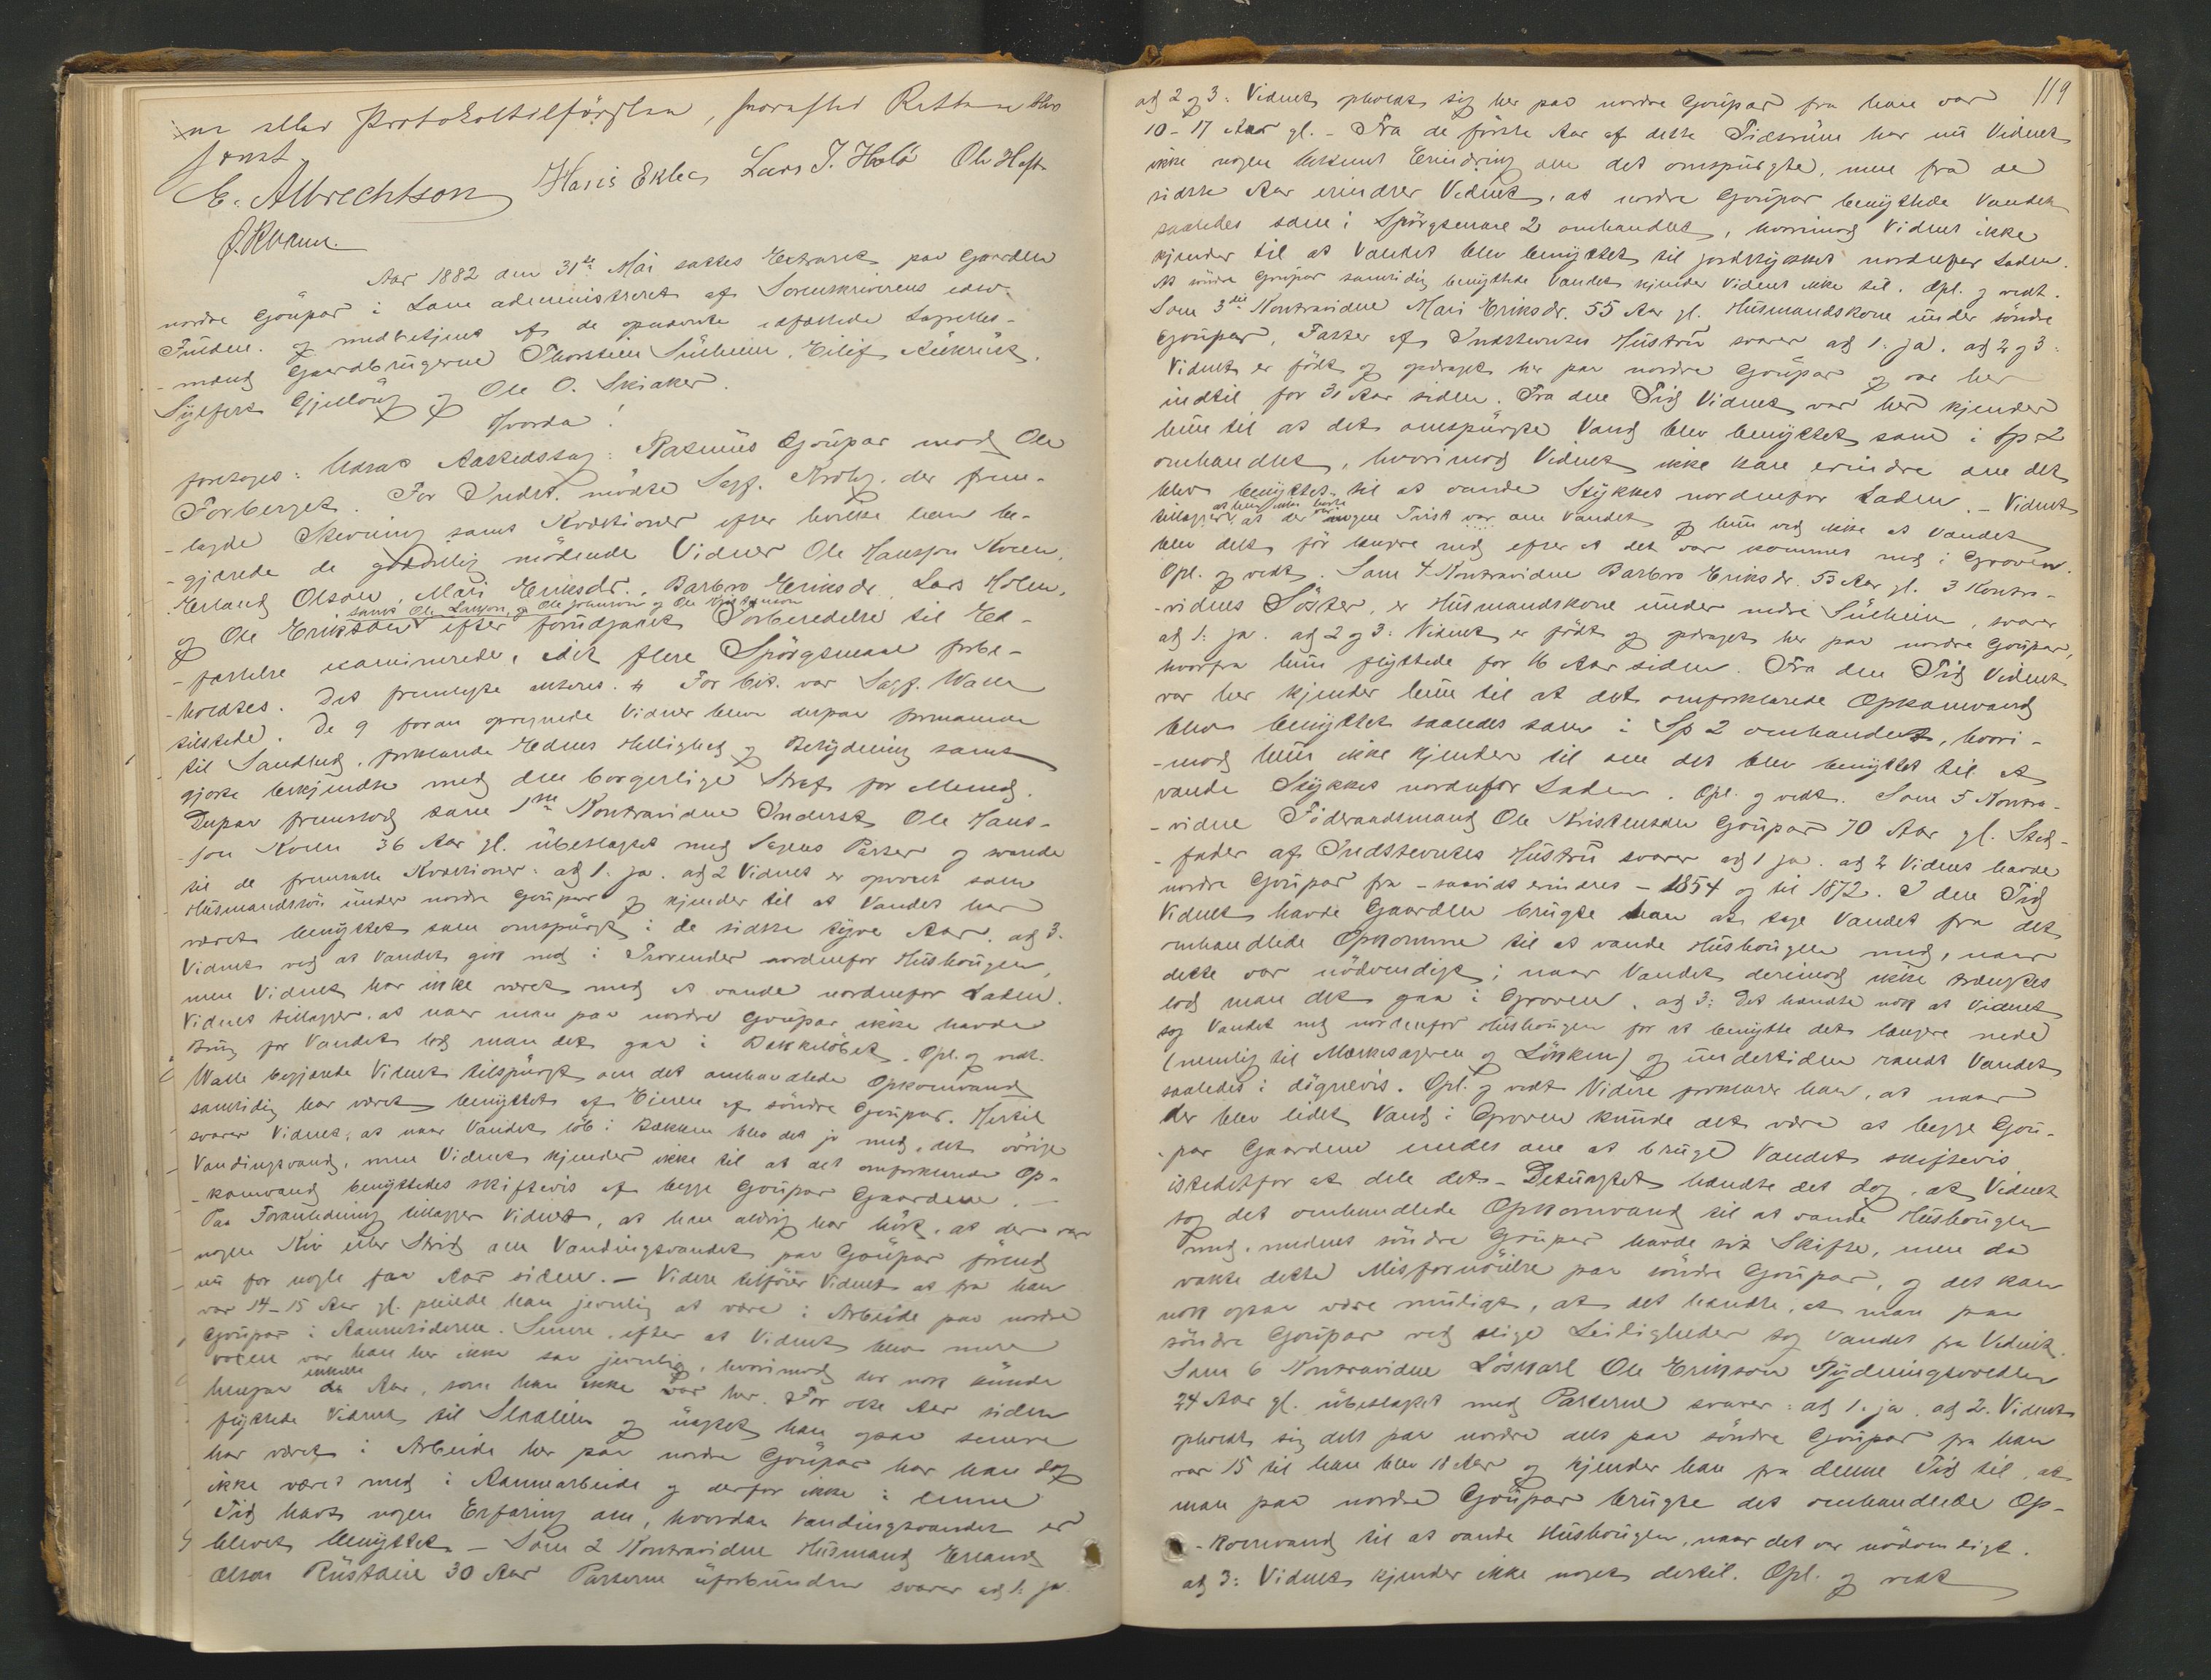 ne eller Protokoltilførslen, hvorefter Retten blev
hævet.
E. Albrechtson Hans Ekle Lars J. Holö Ole Hoft
Ø. Kvarme.
Aar 1882 den 31te Mai sattes Extraret paa Gaarden
nordre Goupar i Lom administreret af Sorenskriverens edsv.
Fuldm. og medbetjent af de opnævnte edfæstede Lagrettes-
-mænd Gaardbrugerne Thorstein Sulheim, Eilif Aukrust,
Sylfest Gjellöug og Ole O. Skiaker.
Hvorda!
foretoges: Udsat Aastedssag: Rasmus Goupar mod Ole
Forberget. For Indst. mødte Sagf. Krohg, der frem-
-lagde Stevning samt Kvæstioner efter hvilke han be-
-gjærede de godvillig mødende Vidner Ole Hansson Kveen,
Erland Olsen, Mari Eriksdr., Barbro Eriksdr. Lars Holen,
samt Ole Larsson, Ole Johnson og Ole Kristenson
og Ole Erikson efter forudgaaet Forberedelse til Ed-
-fæstelse examinerede, idet flere Spørgsmaal forbe-
-holdtes. Det fremlagte akteres. For Cit. var Sagf. Walle
tilstede. De 9 foran opregnede Vidner blev derpaa formanede
til Sandhed, forklaret Edens Hellighed og Betydning samt
gjorte bekjendte med den borgerlige Straf for Mened.
Derpaa fremstod som 1ste Kontravidne Inderst Ole Hans-
-son Kveen 36 Aar gl. ubeslægtet med Sagens Parter og svarede
til de fremsatte Kvæstioner: ad 1. ja. ad 2 Vidnet er opvoxet som
Husmandssøn under nordre Goupar og kjender til at Vandet har
været benyttet som omspurgt i de sidste tyve Aar. ad 3.
Vidnet ved at Vandet gik ned i nordenfor Hushougen,
men Vidnet har ikke været med at vande nordenfor Laden.
Vidnet tillægger, at naar man paa nordre Goupar ikke havde
Brug for Vandet lod man det gaa i Bækkeløbet. Opl. og vedt.
Walle begjærede Vidnet tilspurgt om det omhandlede Opkomvand
samtidig har været benyttet af Eieren af søndre Goupar. Hertil
svarer Vidnet, at naar Vandet løb i Bækken blev det jo med det øvrige
Vandingsvand, men Vidnet kjender ikke til at det omforklarede Op-
-komvand benyttedes skiftevis af begge Goupar Gaardene.
Paa Foranledning tillægger Vidnet, at han aldrig har hørt, at der var
nogen Kiv eller Strid om Vandingsvandet paa Goupar førend
nu for nogle faa Aar siden. — Videre tilføier Vidnet at fra han
var 14-15 Aar gl. pleiede han jevnlig at være i Arbeide paa nordre
Goupar i Aannetiderne. Senere, efter at Vidnet blev mere
voxen var han her ikke saa jevnlig, hvorimod der nok kunde
enkelte
hengaa de Aar, som han ikke var her. For otte Aar siden
flyttede Vidnet til Skeaker og uagtet han ogsaa senere
har været i Arbeide her paa nordre Goupar har han dog
ikke været med i Aannearbeide og derfor ikke i denne
Tid havt nogen Erfaring om, hvordan Vandingsvandet er
blevet benyttet. — Som 2 Kontravidne Husmand Erland
Olson Rusteie 30 Aar Parterne uforbunden svarer ad 1. ja.
119
ad 2 og 3: Vidnet opholdt sig her paa nordre Goupar fra han var
10-17 Aar gl. - Fra de første Aar af dette Tidsrum har nu Vidnet
ikke nogen bestemt Erindring om det omspurgte, men fra de
sidste Aar erindrer Vidnet, at nordre Goupar benyttede Vandet
saaledes som i Spørgsmaal 2 omhandlet, hvorimod Vidnet ikke
kjender til at Vandet blev benyttet til Jordstykket nordenfor Laden.
At søndre Goupar samtidig benyttede Vandet kjender Vidnet ikke til. Opl. og vedt.
Som 3die Kontravidne Mari Eriksdr. 55 Aar gl. Husmandskone under søndre
Goupar, Faster af Indstevntes Hustru svarer ad 1. ja. ad 2 og 3:
Vidnet er født og opdraget her paa nordre Goupar og var her
indtil for 31 Aar siden. Fra den Tid Vidnet var her kjender
hun til at det omspurgte Vand blev benyttet som i Sp 2
omhandlet, hvorimod Vidnet ikke kan erindre om det
blev benyttet til at vande Stykket nordenfor Laden. - Vidnet
at hun ikke hørte
tillægger, at der var nogen Tvist om Vandet og hun ved ikke at Vandet
blev delt før længere ned efter at det var kommet ned i Groven.
Opl. og vedt. Som 4 Kontravidne Barbro Eriksdr. 53 Aar gl. 3 Kontra-
-vidnes Søster, er Husmandskone under nedre Sulheim, svarer
ad 1. ja. ad 2 og 3: Vidnet er født og opdraget her paa nordre Goupar,
hvorfra hun flyttede for 16 Aar siden. Fra den Tid Vidnet
var her kjender hun til at det omforklarede Opkomvand
blev benyttet saaledes som i Sp 2 omhandlet, hvori-
-mod hun ikke kjender til om det blev benyttet til at
vande Stykket nordenfor Laden. Opl. og vedt. Som 5 Kontra-
-vidne Føderaadsmand Ole Kristensen Goupar 70 Aar gl. Sted-
-fader af Indstevntes Hustru svarer ad 1 ja. ad 2 Vidnet havde
nordre Goupar fra - saavidt erindres - 1854 og til 1872. I den Tid
Vidnet havde Gaarden brugte han at tage Vandet fra det
omhandlede Opkomme til at vande Hushougen med, naar
dette var nødvendigt; naar Vandet derimod ikke trængtes
lod man det gaa i Groven. ad 3: Det hændte nok at Vidnet
tog Vandet ned nordenfor Hushougen for at benytte det længere nede
(nemlig til Markesageren og Løkken) og undertiden randt Vandet
saaledes i døgnevis. Opl. og vedt. Videre forklarer han, at naar
der blev lidet Vand i Groven kunde det være at begge Gou-
-par Gaardene enedes om at bruge Vandet skiftevis
istedetfor at dele det. - Desuagtet hændte det dog, at Vidnet
tog det omhandlede Opkomvand til at vande Hushougen
med, medens søndre Goupar havde sit Skifte, men da
vakte dette Misfornøielse paa søndre Goupar, og det kan
nok ogsaa være muligt, at det hændte, at man paa
søndre Goupar ved slige Leiligheder tog Vandet fra Vidnet.
Som 6 Kontravidne Løskarl Ole Erikson Rydningsvolden
24 Aar gl. ubeslægtet med Parterne svarer: ad 1. ja. ad 2. Vidnet
opholdt sig dels paa nordre dels paa søndre Goupar fra han
var 15 til han blev 18 Aar og kjender han fra denne Tid til, at
man paa nordre Goupar brugte det omhandlede Op-
-komvand til at vande Hushougen, naar det var nødvendigt.
ad 3: Vidnet kjender ikke noget dertil. Opl. og vedt.